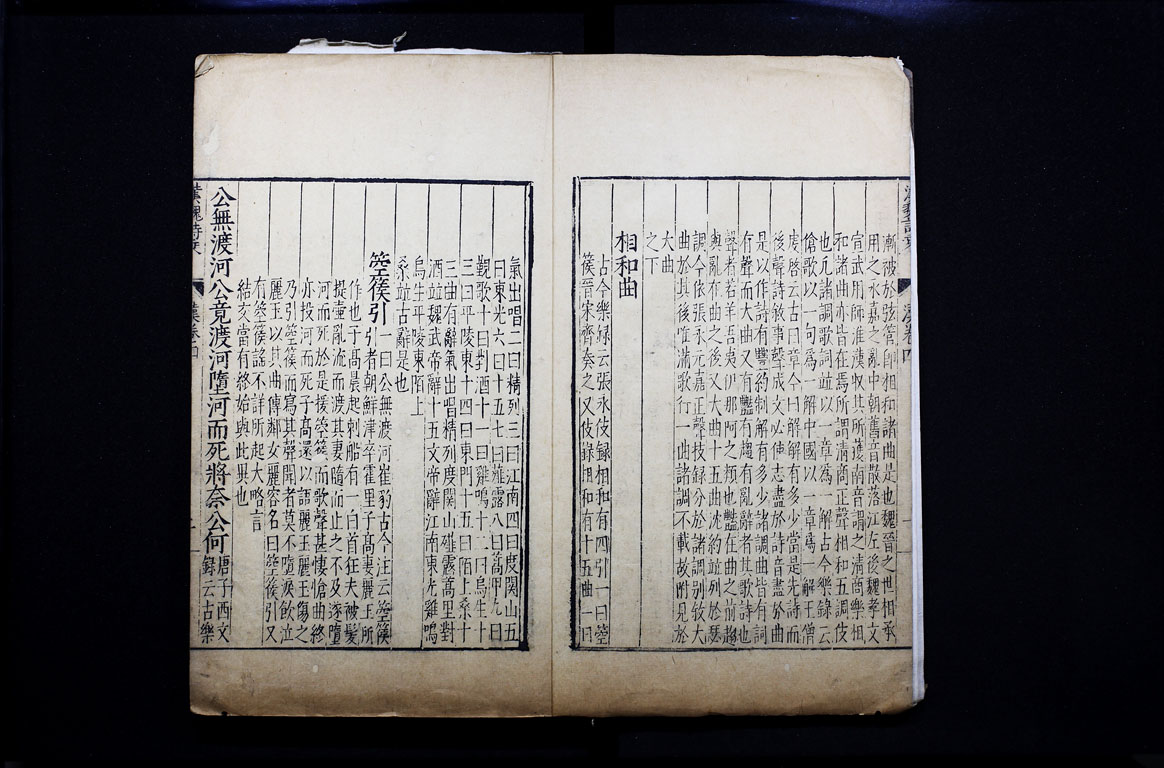 漸被於弦管即相和諸曲是也魏晉之世相承
用之永嘉之亂中朝舊音散落江左後魏孝文
宣武用師淮漢收其所獲南音謂之清商樂相
和諸曲亦皆在焉所謂清商正聲相和五調伎
也凡諸調歌詞竝以一章為一解古今樂錄云
傖歌以一句為一解中國以一章為一解王僧
虔啓云古曰章今曰解解有多少當是先詩而
後聲詩敘事聲成文必使志盡於詩音盡於曲
是以作詩有豐約制解有多少諸調曲皆有詞
有聲而大曲又有豔有趨有亂辭者其歌詩也
聲者若羊吾夷伊那阿之類也豔在曲之前趨
與亂在曲之後又大曲十五曲沈約竝列於瑟
調今依張永元嘉正聲技録分於諸調別敘大
曲於其後唯滿歌行一曲諸調不載故附見於
大曲
之下
相和曲
古今樂録云張永伎録相和有四引一曰箜
篌晉宋齊奏之又伎録相和有十五曲一曰
氣出唱二曰精列三曰江南四曰度関山五
曰東光六曰十五七曰薤露八曰蒿里九曰
觀歌十曰對酒十一曰雞鳴十二曰烏生十
三曰平陵東十四曰東門十五曰陌上桑十
三曲有辭氣出唱精列度関山薤露蒿里對
酒竝魏武帝辭十五文帝辭江南東光雞鳴
烏生平陵東陌上
桑竝古辭是也
箜篌引 一曰公無渡河崔豹古今注云箜篌
引者朝鮮津卒霍里子髙妻麗玉所
作也子髙晨起刺船有一白首狂夫被髪
提壷亂流而渡其妻隨而止之不及遂墮
河而死於是援箜篌而歌聲甚悽愴曲終
亦投河而死子髙還以語麗玉麗玉傷之
乃引箜篌而寫其聲聞者莫不墮淚飲泣
麗玉以其曲傳鄰女麗容名曰箜篌引又
有箜篌謠不詳所起大略言
結交當有終始與此異也
公無渡河公竟渡河墮河而死將奈公何 唐子西文
録云古樂
漢魏詩乘
漢卷四